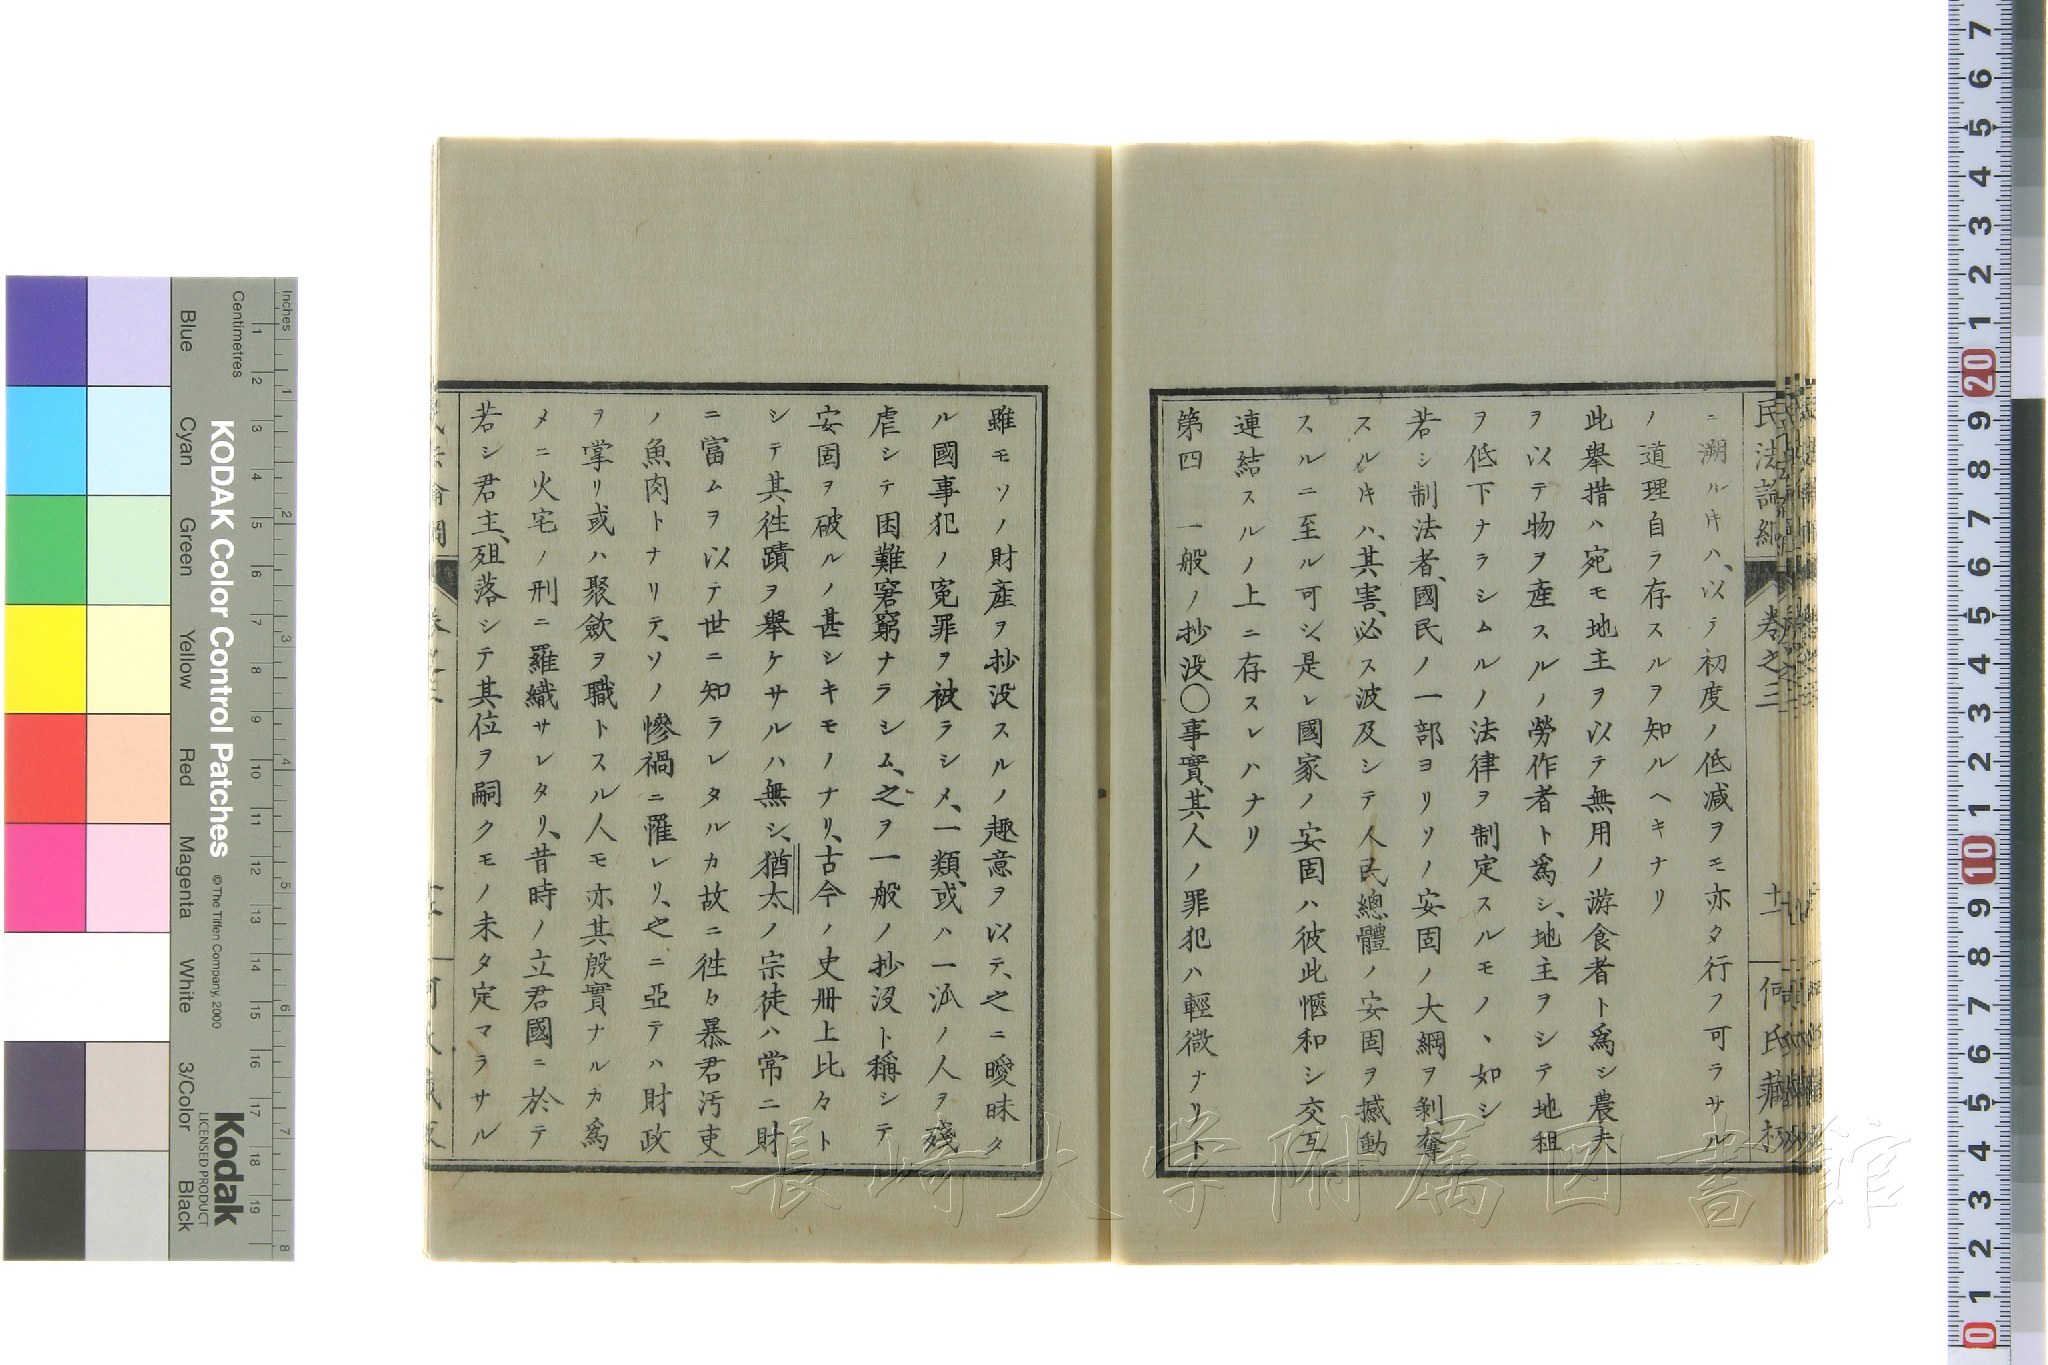 ニ溯ルﾄｷハ、以テ初度ノ低减ヲモ亦タ行フ可ラサル
ノ道理自ラ存スルヲ知ルヘキナリ
此舉措ハ宛モ地主ヲ以テ無用ノ游食者ト爲シ農夫
ヲ以テ物ヲ產スルノ勞作者ト爲シ、地主ヲシテ地租
ヲ低下ナラシムルノ法律ヲ制定スルモノヽ如シ
若シ制法者、國民ノ一部ヨリソノ安固ノ大綱ヲ剝奪
スルﾄｷハ、其害、必ス波及シテ人民總體ノ安固ヲ撼動
スルニ至ル可シ、是レ國家ノ安固ハ彼此愜和シ交互
連結スルノ上ニ存スレハナリ
第四 一般ノ抄沒〇事實、其人ノ罪犯ハ輕微ナリト
雖モソノ財產ヲ抄沒スルノ趣意ヲ以テ、之ニ曖昧タ
ル國事犯ノ寃罪ヲ被ラシメ、一類、或ハ一派ノ人ヲ殘
虐シテ困難窘窮ナラシム、之ヲ一般ノ抄沒ト稱シテ
安固ヲ破ルノ甚シキモノナリ、古今ノ史册上比々ト
シテ其徃蹟ヲ舉ケサルハ無シ、猶太ノ宗徒ハ常ニ財
ニ富ムヲ以テ世ニ知ラレタルカ故ニ徃々暴君汚吏
ノ魚肉トナリテ、ソノ慘禍ニ罹レリ、之ニ亞テハ財政
ヲ掌リ或ハ聚歛ヲ職トスル人モ亦其殷實ナルカ爲
メニ火宅ノ刑ニ羅織サレタリ、昔時ノ立君國ニ於テ
若シ君主、殂落シテ其位ヲ嗣クモノ未タ定マラサル
民法論綱
卷之三
十二
何氏藏板
長崎大学附属図書館
KODAK Color Control Patches
© The Tiffen Company, 2000
Kodak
LICENSED PRODUCT
Inches
Centimetres
Blue
Cyan
Green
Yellow
Red
Magenta
White
3/Color
Black